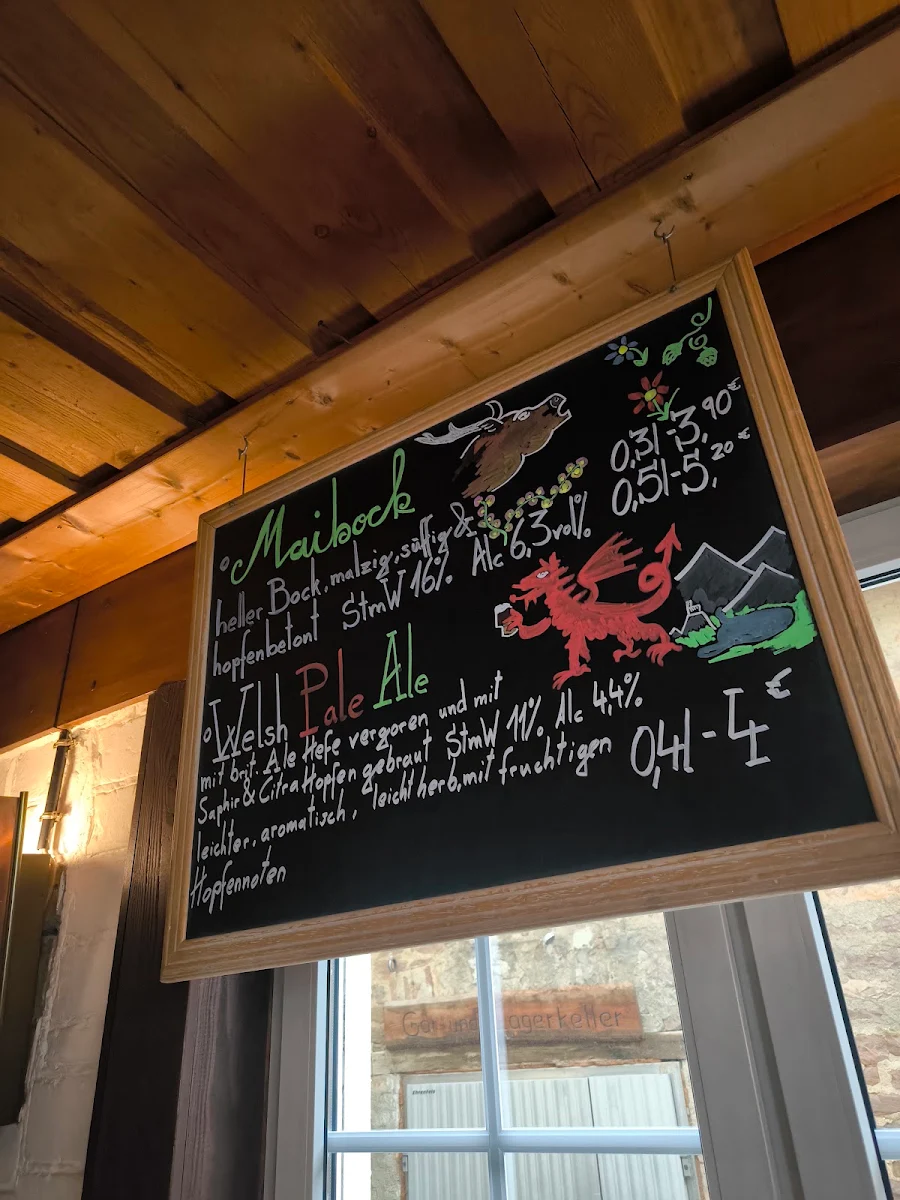 Maibock
0,3l-3,90€
heller Bock, malzig, süffig &
0,5l-5,20€
hopfenbetont StmW 16% Alc 6,3vol%
Welsh Pale Ale
mit brit. Ale Hefe vergoren und mit
Saphir & Citra Hopfen gebraut StmW 11% Alc 4,4%
leichter, aromatisch, leicht herb, mit fruchtigen
0,4l-4€
Hopfennoten
Gär und Lagerkeller